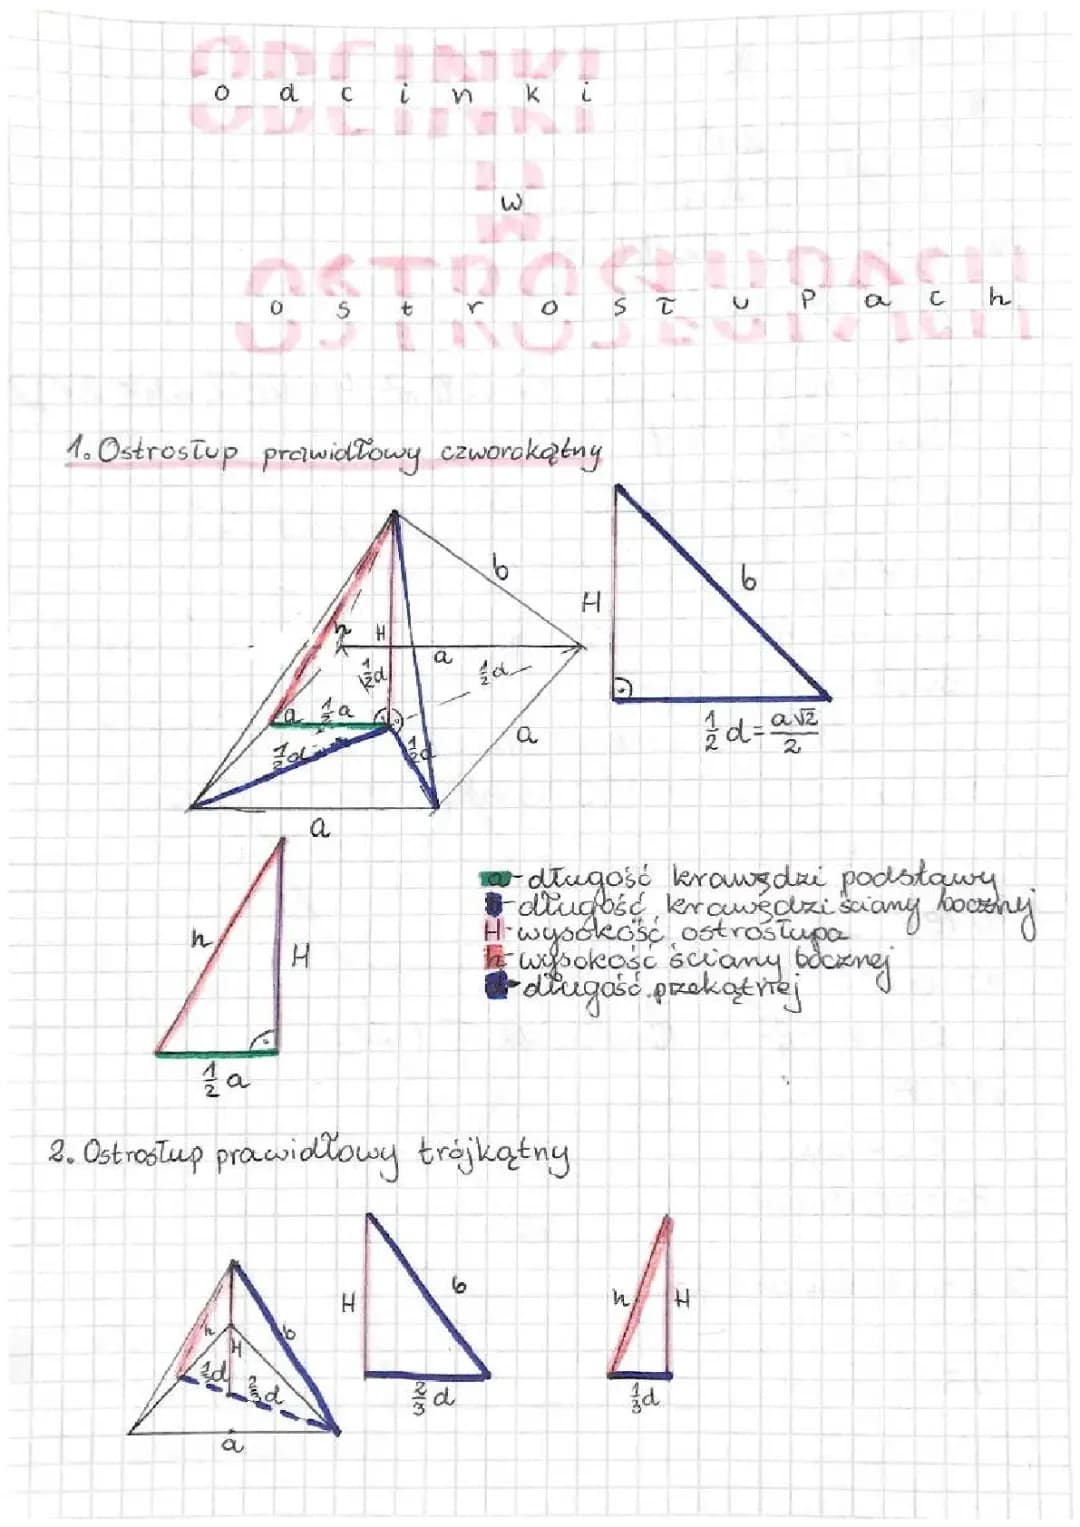 ODCINKI
odcinki
W
w
OSTROSŁUPACH
ostrosłupach
1. Ostrosłup prawidłowy czworokątny
b
H
b
h
H
a
½d
½d
a
½a
a
½d
½d
½d = a√2/2
a
a - długość krawędzi podstawy
b - długość krawędzi ściany bocznej
H - wysokość ostrosłupa
h - wysokość ściany bocznej
d - długość przekątnej
h
H
½a
2. Ostrosłup prawidłowy trójkątny
H
b
h
H
h
b
H
⅓d
⅔d
⅔d
⅓d
a